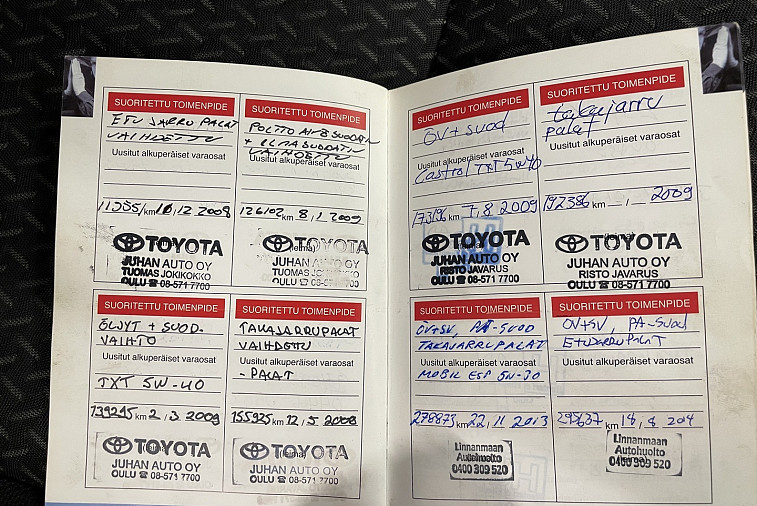 SUORITETTU TOIMENPIDE
ETU JARRU PALAT
VAIHDETTU
Uusitut alkuperäiset varaosat
km 10, 12 2008
TOYOTA
JUHAN AUTO OY
TUOMAS JOKIKOKKO
OULU ☎ 08-571 7700
SUORITETTU TOIMENPIDE
POLTTO AINE SUODATIN
+ ILMASUODATIN
VAIHDETTU
Uusitut alkuperäiset varaosat
126102 km 8, 1 2009
(leima)
TOYOTA
JUHAN AUTO OY
TUOMAS
OULU ☎ 08-571 7700
SUORITETTU TOIMENPIDE
ÖLJYT + SUOD.
VAIHTO
Uusitut alkuperäiset varaosat
TXT 5W-40
139245 km 2, 3 2009
TOYOTA
JUHAN AUTO OY
OULU ☎ 08-571 7700
SUORITETTU TOIMENPIDE
TAKAJARRUPALAT
VAIHDETTU
Uusitut alkuperäiset varaosat
- PALAT
155925 km 12, 5 2009
TOYOTA
JUHAN AUTO OY
OULU ☎ 08-571 7700
SUORITETTU TOIMENPIDE
ÖV+ suod
Uusitut alkuperäiset varaosat
Castrol TXT 5w40
173196 km 7, 8 2009
TOYOTA
JUHAN AUTO OY
RISTO JAVARUS
OULU ☎ 08-571 7700
SUORITETTU TOIMENPIDE
takajarru
palat
Uusitut alkuperäiset varaosat
192386 km 2009
TOYOTA
JUHAN AUTO OY
RISTO JAVARUS
OULU ☎ 08-571 7700
SUORITETTU TOIMENPIDE
ÖV+SV, PA-SUOD
TAKAJARRUPALAT
Uusitut alkuperäiset varaosat
MOBIL ESP 5W-30
278873 km 22, 11 2013
Linnanmaan
Autohuolto
0400 309 520
SUORITETTU TOIMENPIDE
ÖV+SV, PA-Suod
ETUJARRUPALAT
Uusitut alkuperäiset varaosat
km 18, 8 204
Linnanmaan
Autohuolto
0400 309 520